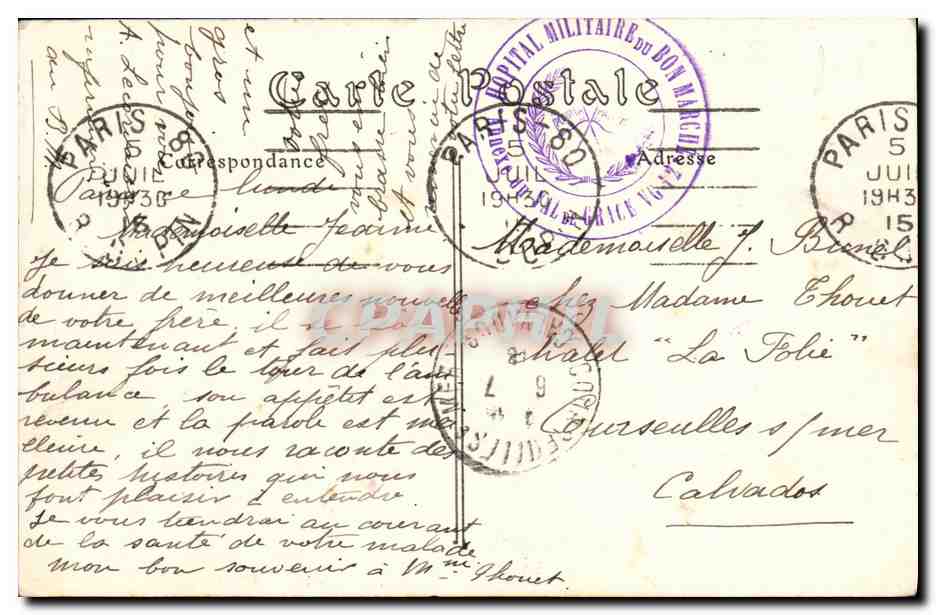 Carte Postale
Correspondance
Adresse
HOPITAL MILITAIRE DU BON MARCHÉ
Annexe du VAL DE GRACE VG N°2
PARIS
5
JUIL
19H30
PARIS-80
5
JUIL
19H30
PARIS
5
JUIL
19H3
15
Paris ce lundi
Mademoiselle Jeanne
Je suis heureuse de vous
donner de meilleures nouvelles
de votre frère, il se lève
maintenant et fait plu
sieurs fois le tour de l'am
bulance son appétit est
revenu et la parole est mei
lleure, il nous raconte des
petites histoires qui nous
font plaisir à entendre
Je vous tiendrai au courant
de la santé de votre malade
mon bon souvenir à Mme Thouet
et une
gros
bonjour
pour vous
A. Lecou
infirmière
au B.M
vous embrasse bien
votre lettre
Mademoiselle J. Brunel
chez Madame Thouet
chalet "La Folie"
Courseulles s/mer
Calvados
COURSEULLES S MER
6 7
CPARAMA